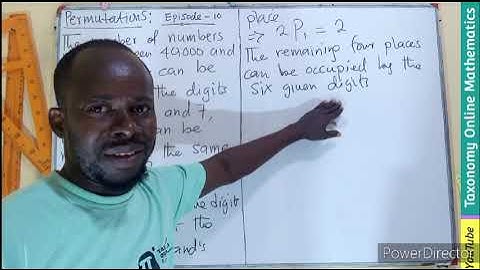 Permutations: Episode-10
The number of numbers
49,000 and
can be
the digits
and 7,
can be
the same
the digit
the
and's
place
⇒ 2P1 = 2
The remaining four places
can be occupied by the
Six given digits
Taxonomy Online Mathematics
YouTube
PowerDirector